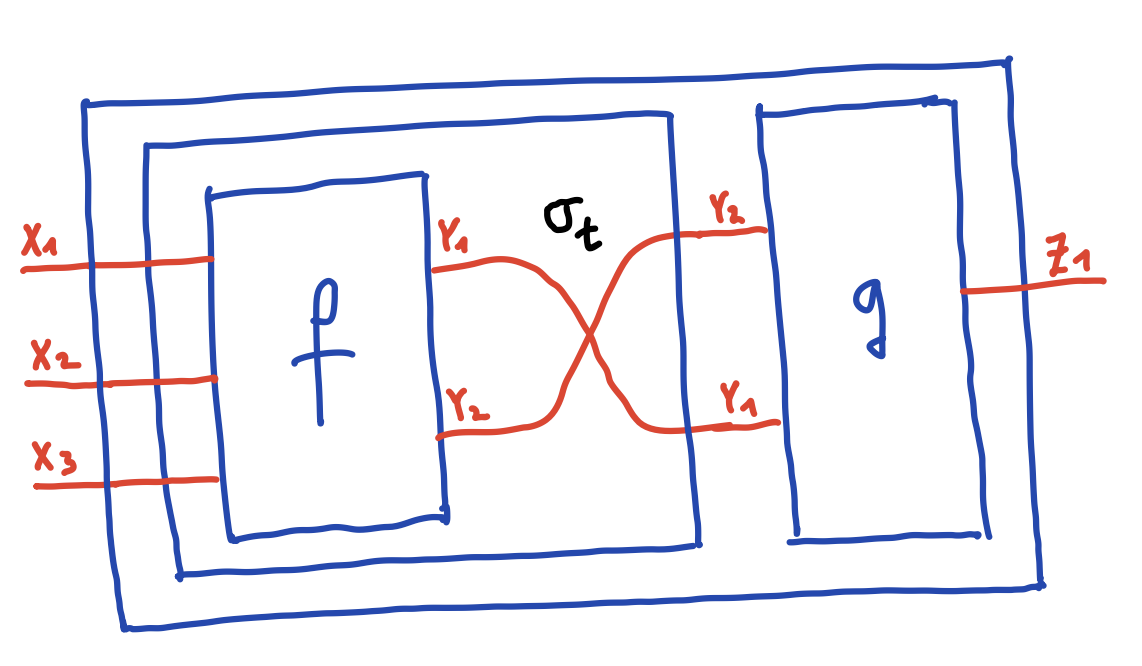 X1
X2
X3
f
Y1
Y2
σt
Y2
Y1
g
Z1